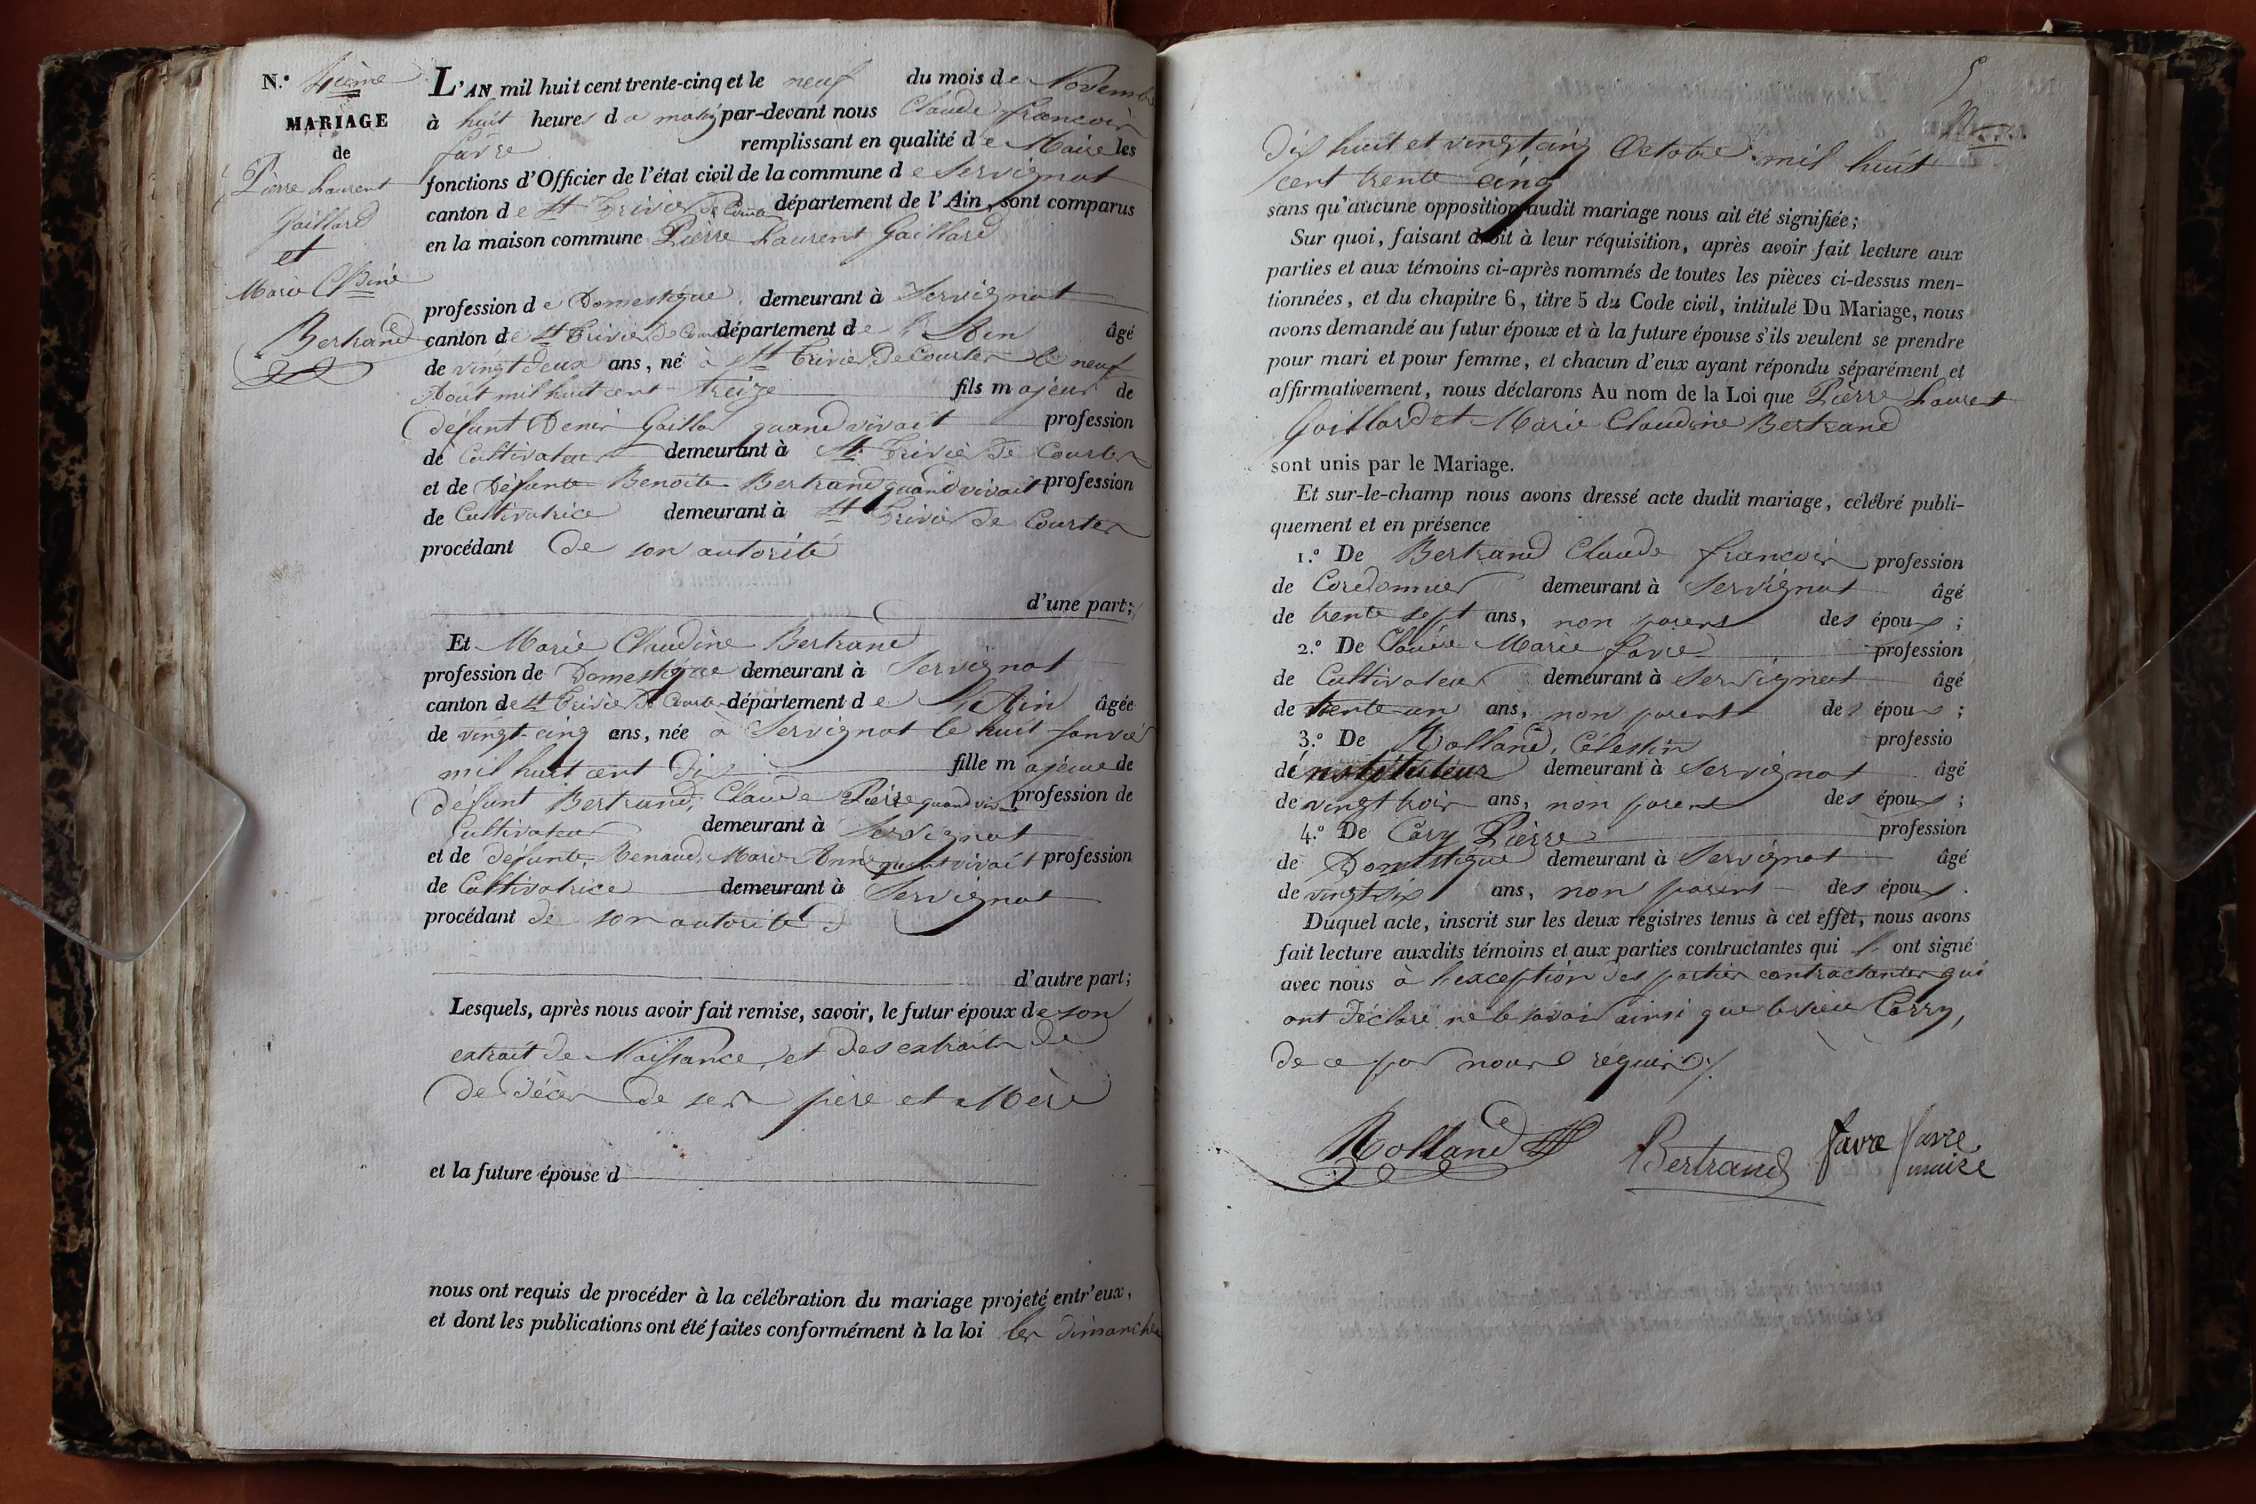 N.° 4ième
MARIAGE
de
Pierre Laurent
Gaillard
et
Marie Cldine
Bertrand
L'AN mil huit cent trente-cinq et le neuf du mois de Novembre
à huit heures du matin par-devant nous Claude françois
favre remplissant en qualité de Maire les
fonctions d'Officier de l'état civil de la commune de Servignat
canton de St Trivier De Courtes département de l'Ain, sont comparus
en la maison commune Pierre Laurent Gaillard
profession de Domestique demeurant à Servignat
canton de St Trivier De Courtes département de l'Ain âgé
de vingt deux ans, né à St Trivier De Courtes le neuf
Août mil huit cent treize fils majeur de
défunt Denis Gaillard quand vivait profession
de Cultivateur demeurant à St Trivier De Courtes
et de Défunte Benoite Bertrand quand vivait profession
de Cultivatrice demeurant à St Trivier De Courtes
procédant de son autorité
d'une part;
Et Marie Claudine Bertrand
profession de Domestique demeurant à Servignat
canton de St Trivier De Courtes département de L'Ain âgée
de vingt-cinq ans, née à Servignat le huit Janvier
mil huit cent dix fille majeure de
défunt Bertrand, Claude Pierre quand vivait profession de
Cultivateur demeurant à Servignat
et de défunte Renaud, Marie Anne quand vivait profession
de Cultivatrice demeurant à Servignat
procédant de son autorité
d'autre part;
Lesquels, après nous avoir fait remise, savoir, le futur époux de son
extrait de Naissance, et des extraits de
de Décès de ses père et Mère
et la future épouse d
nous ont requis de procéder à la célébration du mariage projeté entr'eux,
et dont les publications ont été faites conformément à la loi les dimanches
5
Dix huit et vingt cinq Octobre mil huit
cent trente cinq
sans qu'aucune opposition audit mariage nous ait été signifiée;
Sur quoi, faisant droit à leur réquisition, après avoir fait lecture aux
parties et aux témoins ci-après nommés de toutes les pièces ci-dessus men-
tionnées, et du chapitre 6, titre 5 du Code civil, intitulé Du Mariage, nous
avons demandé au futur époux et à la future épouse s'ils veulent se prendre
pour mari et pour femme, et chacun d'eux ayant répondu séparément et
affirmativement, nous déclarons Au nom de la Loi que Pierre Laurent
Gaillard et Marie Claudine Bertrand
sont unis par le Mariage.
Et sur-le-champ nous avons dressé acte dudit mariage, célébré publi-
quement et en présence
1.° De Bertrand Claude françois profession
de Coredonnier demeurant à Servignat âgé
de trente sept ans, non parent des époux;
2.° De Claude Marie favre profession
de Cultivateur demeurant à Servignat âgé
de trente un ans, non parent des époux;
3.° De Rolland, Célestin professio
de instituteur demeurant à Servignat âgé
de vingt trois ans, non parent des époux;
4.° De Cary Pierre profession
de Domestique demeurant à Servignat âgé
de vingt six ans, non parent des époux.
Duquel acte, inscrit sur les deux registres tenus à cet effet, nous avons
fait lecture auxdits témoins et aux parties contractantes qui l' ont signé
avec nous à l'exception des parties contractantes qui
ont déclaré ne le savoir ainsi que le sieur Carry,
de ce par nous requis ./.
Rolland Bertrand favre favre
maire